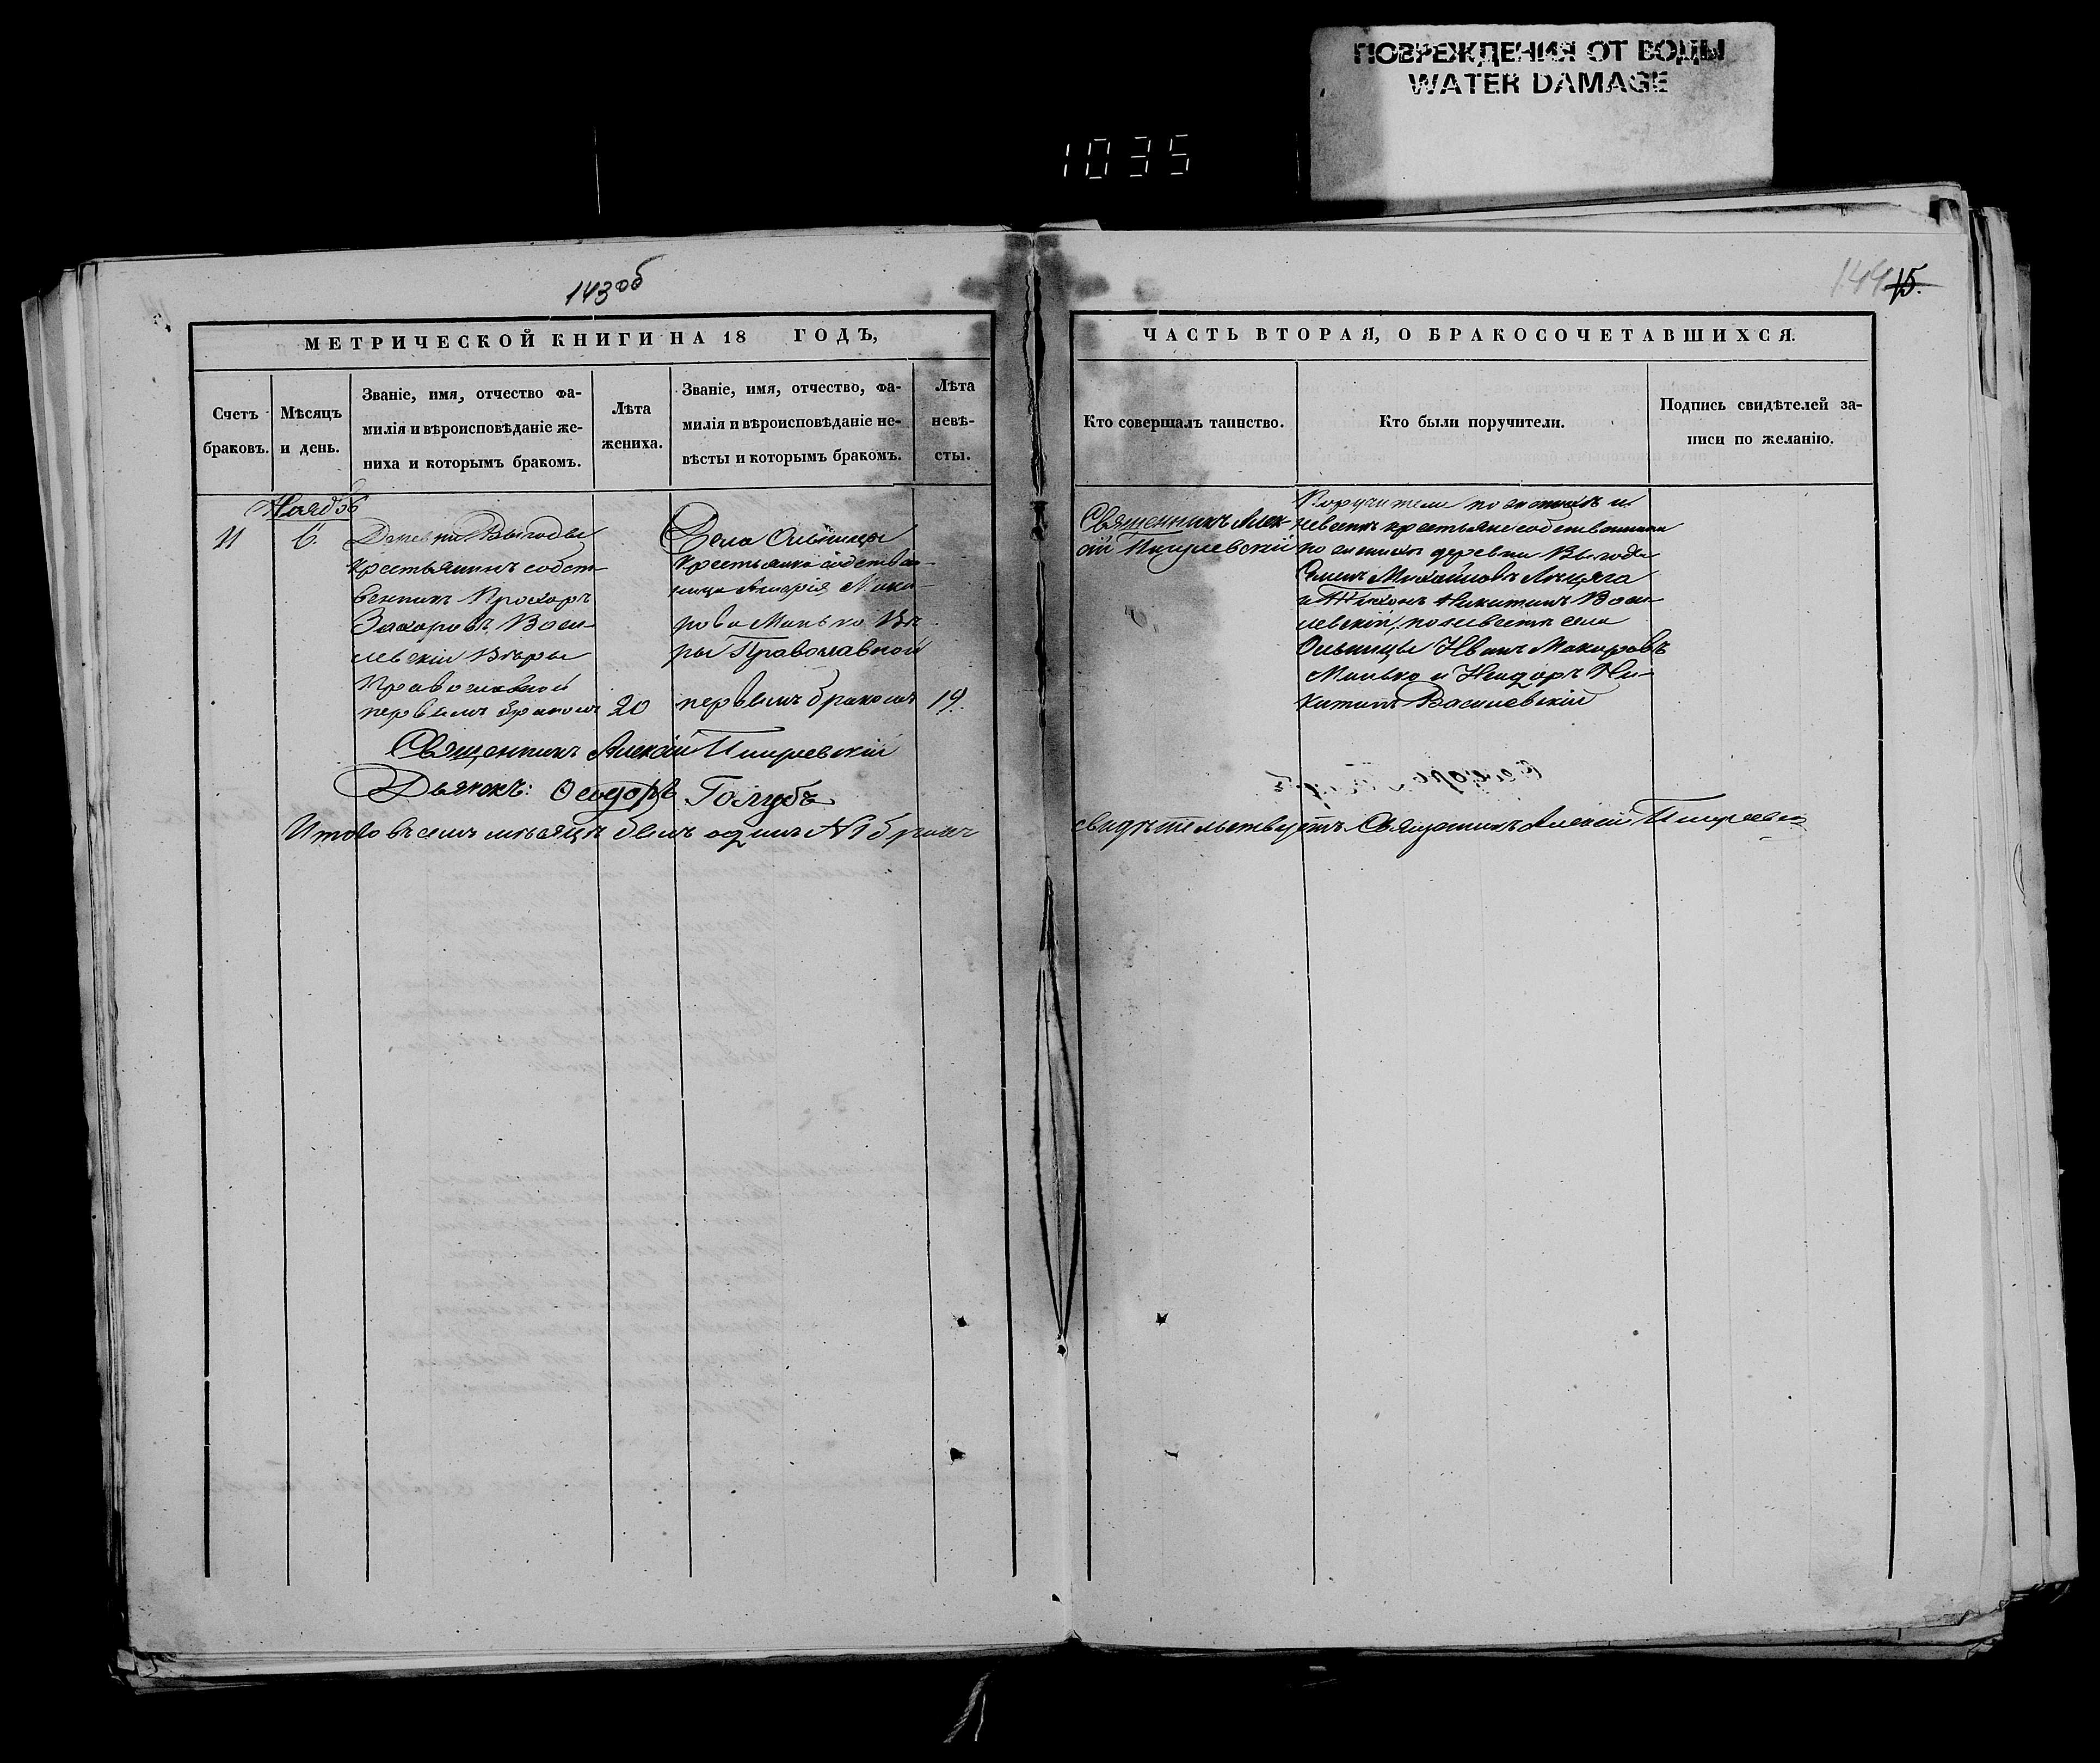 ПОВРЕЖДЕНИЯ ОТ ВОДЫ
WATER DAMAGE
1035
143об
144 15.
МЕТРИЧЕСКОЙ КНИГИ НА 18 ГОДЪ,
Счетъ браковъ.
Мѣсяцъ и день.
Званіе, имя, отчество фа-
милія и вѣроисповѣданіе же-
ниха и которымъ бракомъ.
Лѣта
жениха.
Званіе, имя, отчество, фа-
милія и вѣроисповѣданіе не-
вѣсты и которымъ бракомъ.
Лѣта
невѣ-
сты.
11
6.
Деревни Выгоды
крестьянинъ собст-
венникъ Прохоръ
Захаровъ Васи-
левскій Вѣры
Православной
первымъ бракомъ
20
Села Ольшницы
крестьянка собствен-
ница
рова Минько Вѣ-
ры Православной
первымъ бракомъ
19.
Священникъ Алексій
Дьячокъ: Ѳеодоръ Голубъ
Итого въ семъ мѣсяцѣ былъ одинъ №1 бракъ
ЧАСТЬ ВТОРАЯ, О БРАКОСОЧЕТАВШИХСЯ.
Кто совершалъ таинство.
Кто были поручители.
Подпись свидѣтелей за-
писи по желанію.
Священникъ Алек-
сій
Поручители по женихѣ и
невѣстѣ крестьяне собственники
по женихѣ деревни Выгоды
Семенъ Михайловъ
и Тихонъ Никитинъ Васи-
левскій, по невѣстѣ села
Ольшницы Иванъ Макаровъ
Минько и Исидоръ Ни-
китинъ Василевскій
свидѣтельствуетъ Священникъ Алексій